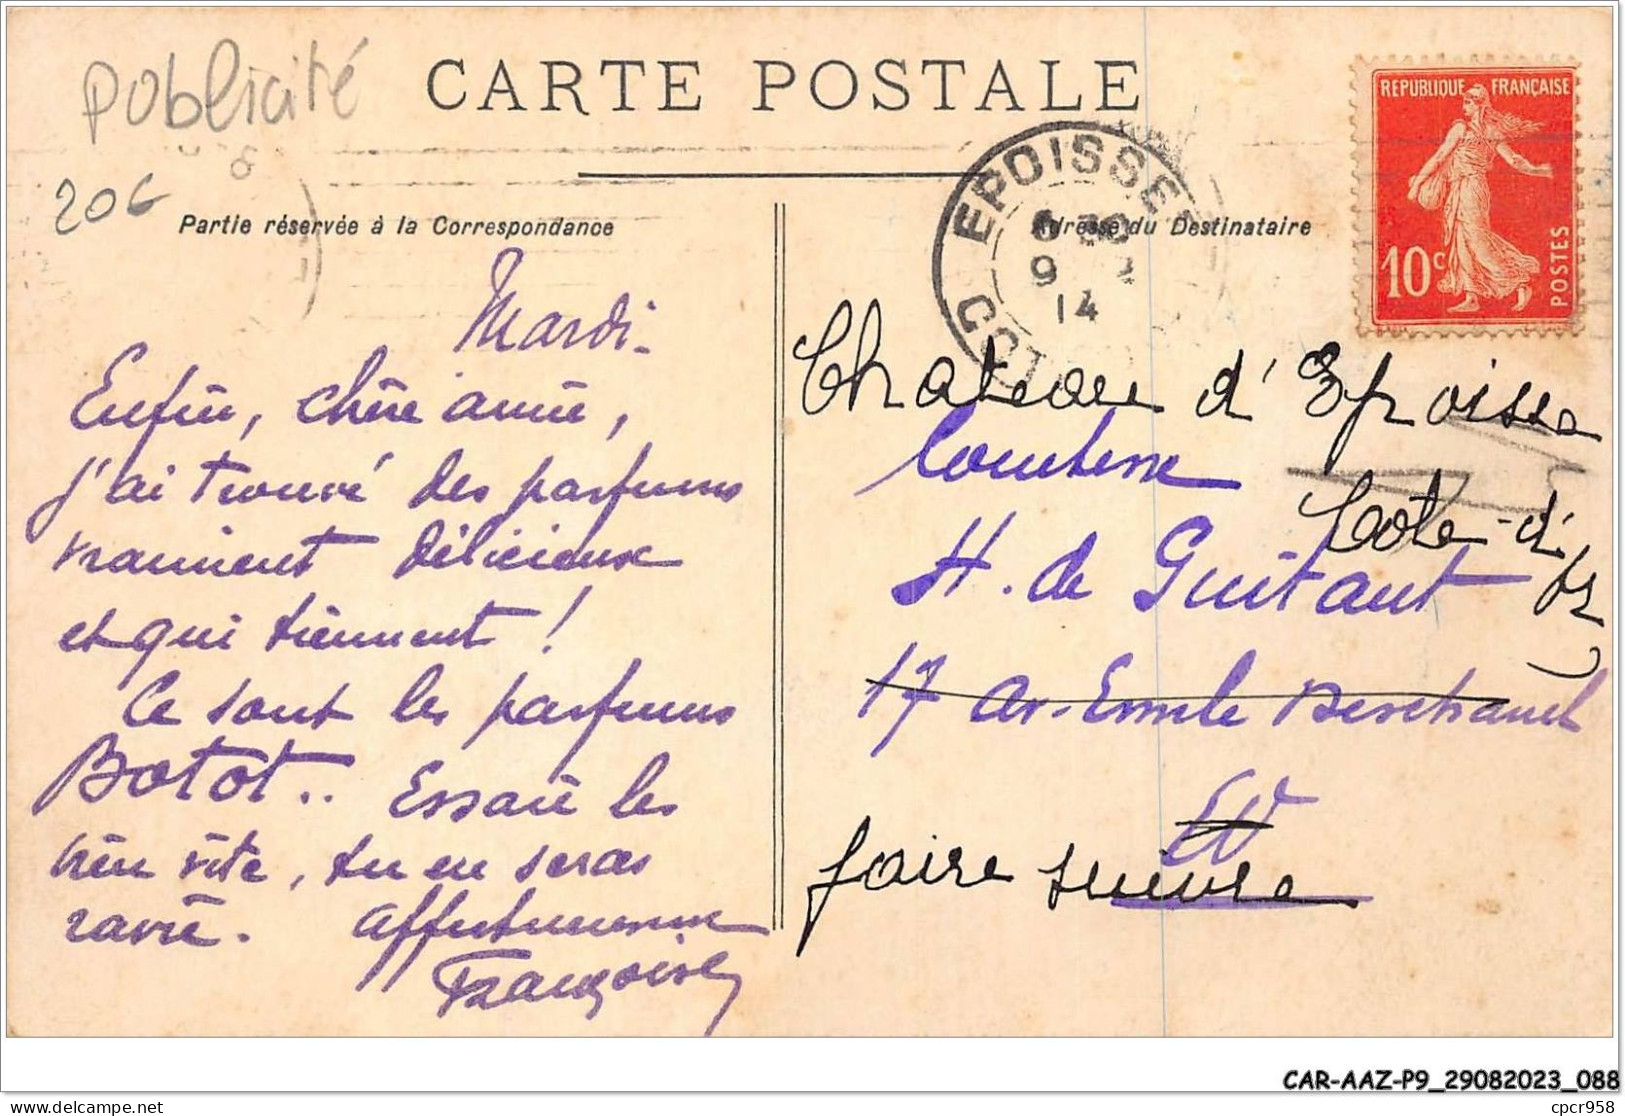 publicité
CARTE POSTALE
REPUBLIQUE FRANÇAISE
10c
POSTES
EPOISSES
9
14
COT
206
Partie réservée à la Correspondance
Adresse du Destinataire
Mardi.
Enfin, chère amie,
j'ai trouvé des parfums
vraiment délicieux
et qui tiennent !
Ce sont les parfums
Botot.. Essaie les
bien vite, tu en seras
ravie. Affectueusement
Françoise
Chateau d'Epoisse
Comtesse
Cote-d'Or
H. de Guitaut
17 Av. Emile Deschanel
EV
faire suivre
CAR-AAZ-P9_29082023_088
delcampe.net
cpcr958